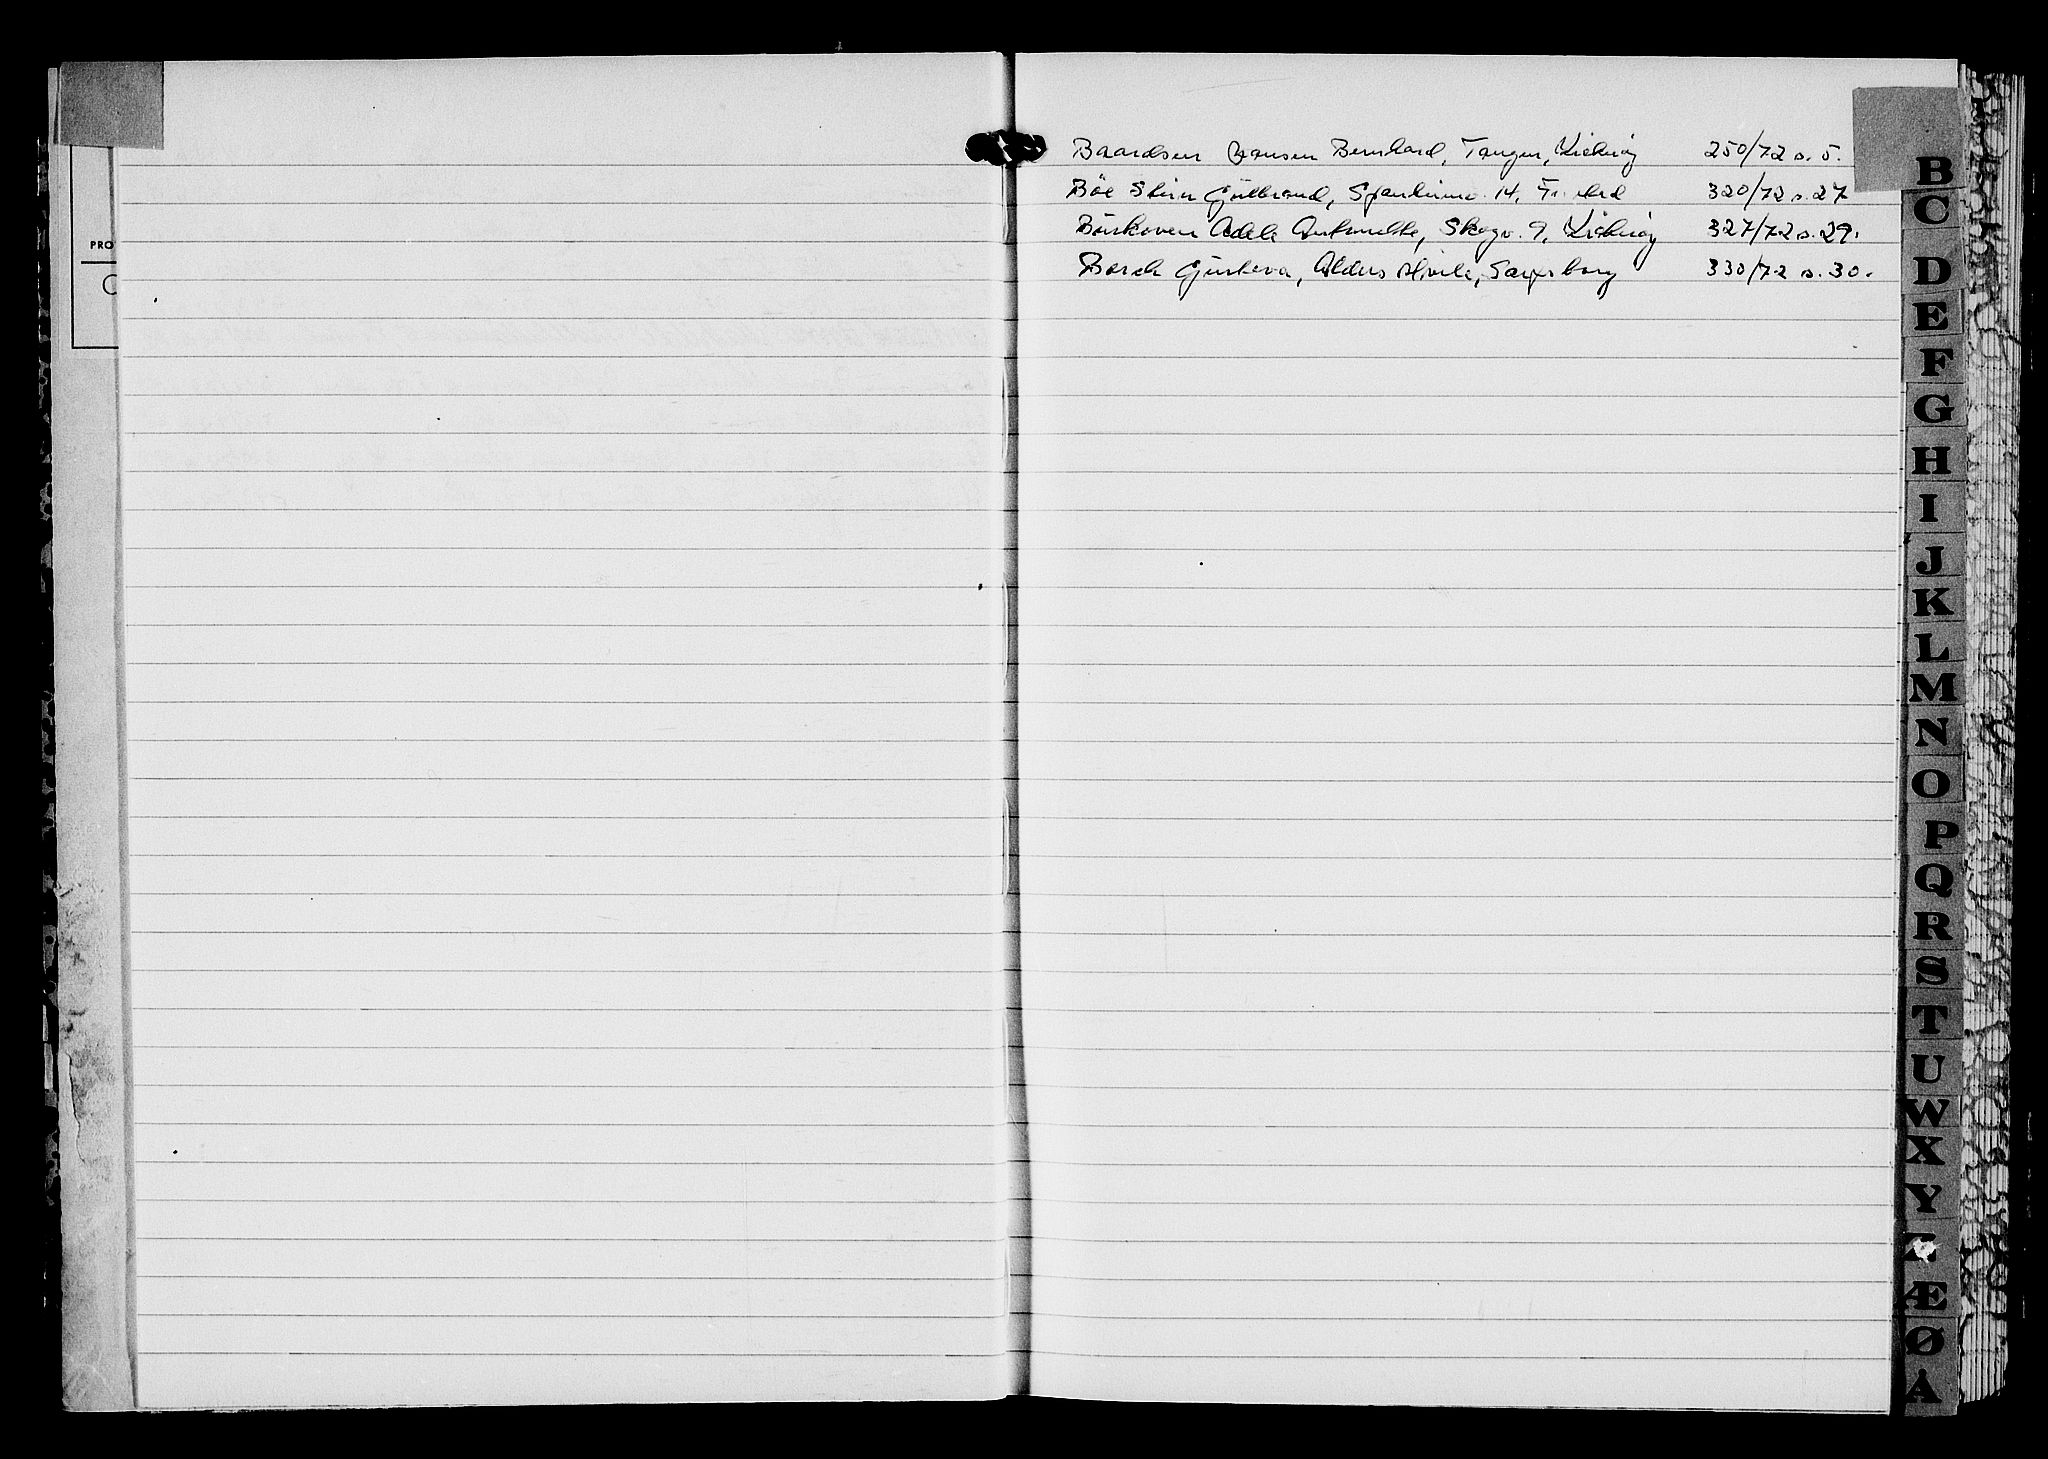 PRO
Baardsen Hansen Bernhard, Tangen, Kirkøy 250/72 s. 5.
Böe Stein Gulbrand, 14, Fr.stad 320/72 s. 27
Adele Antonette, Skogv. 9, Kirkøy 327/72 s. 29.
Borch Gustava, Alders Hvile, Sarpsborg 330/72 s. 30.
B
C
D
E
F
G
H
I
J
K
L
M
N
O
P
Q
R
S
T
U
W
X
Y
Z
Æ
Ø
Å